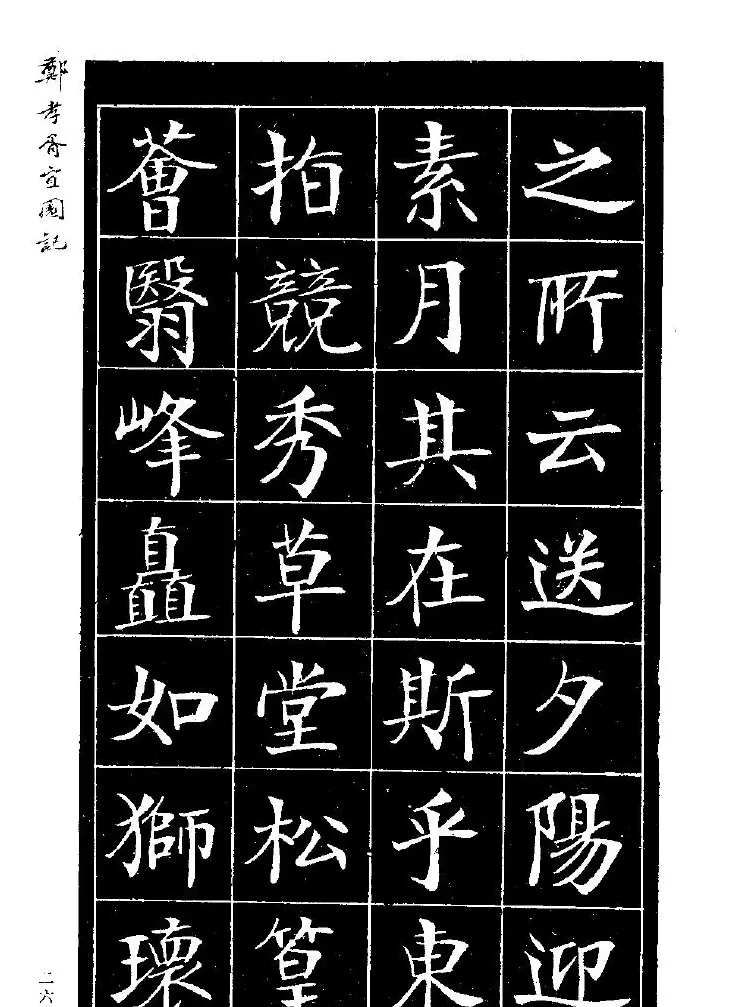 之所云送夕陽迎
素月其在斯乎東
指競秀草堂松篁
薈翳峰矗如獅
鄭孝胥宜園記
二六